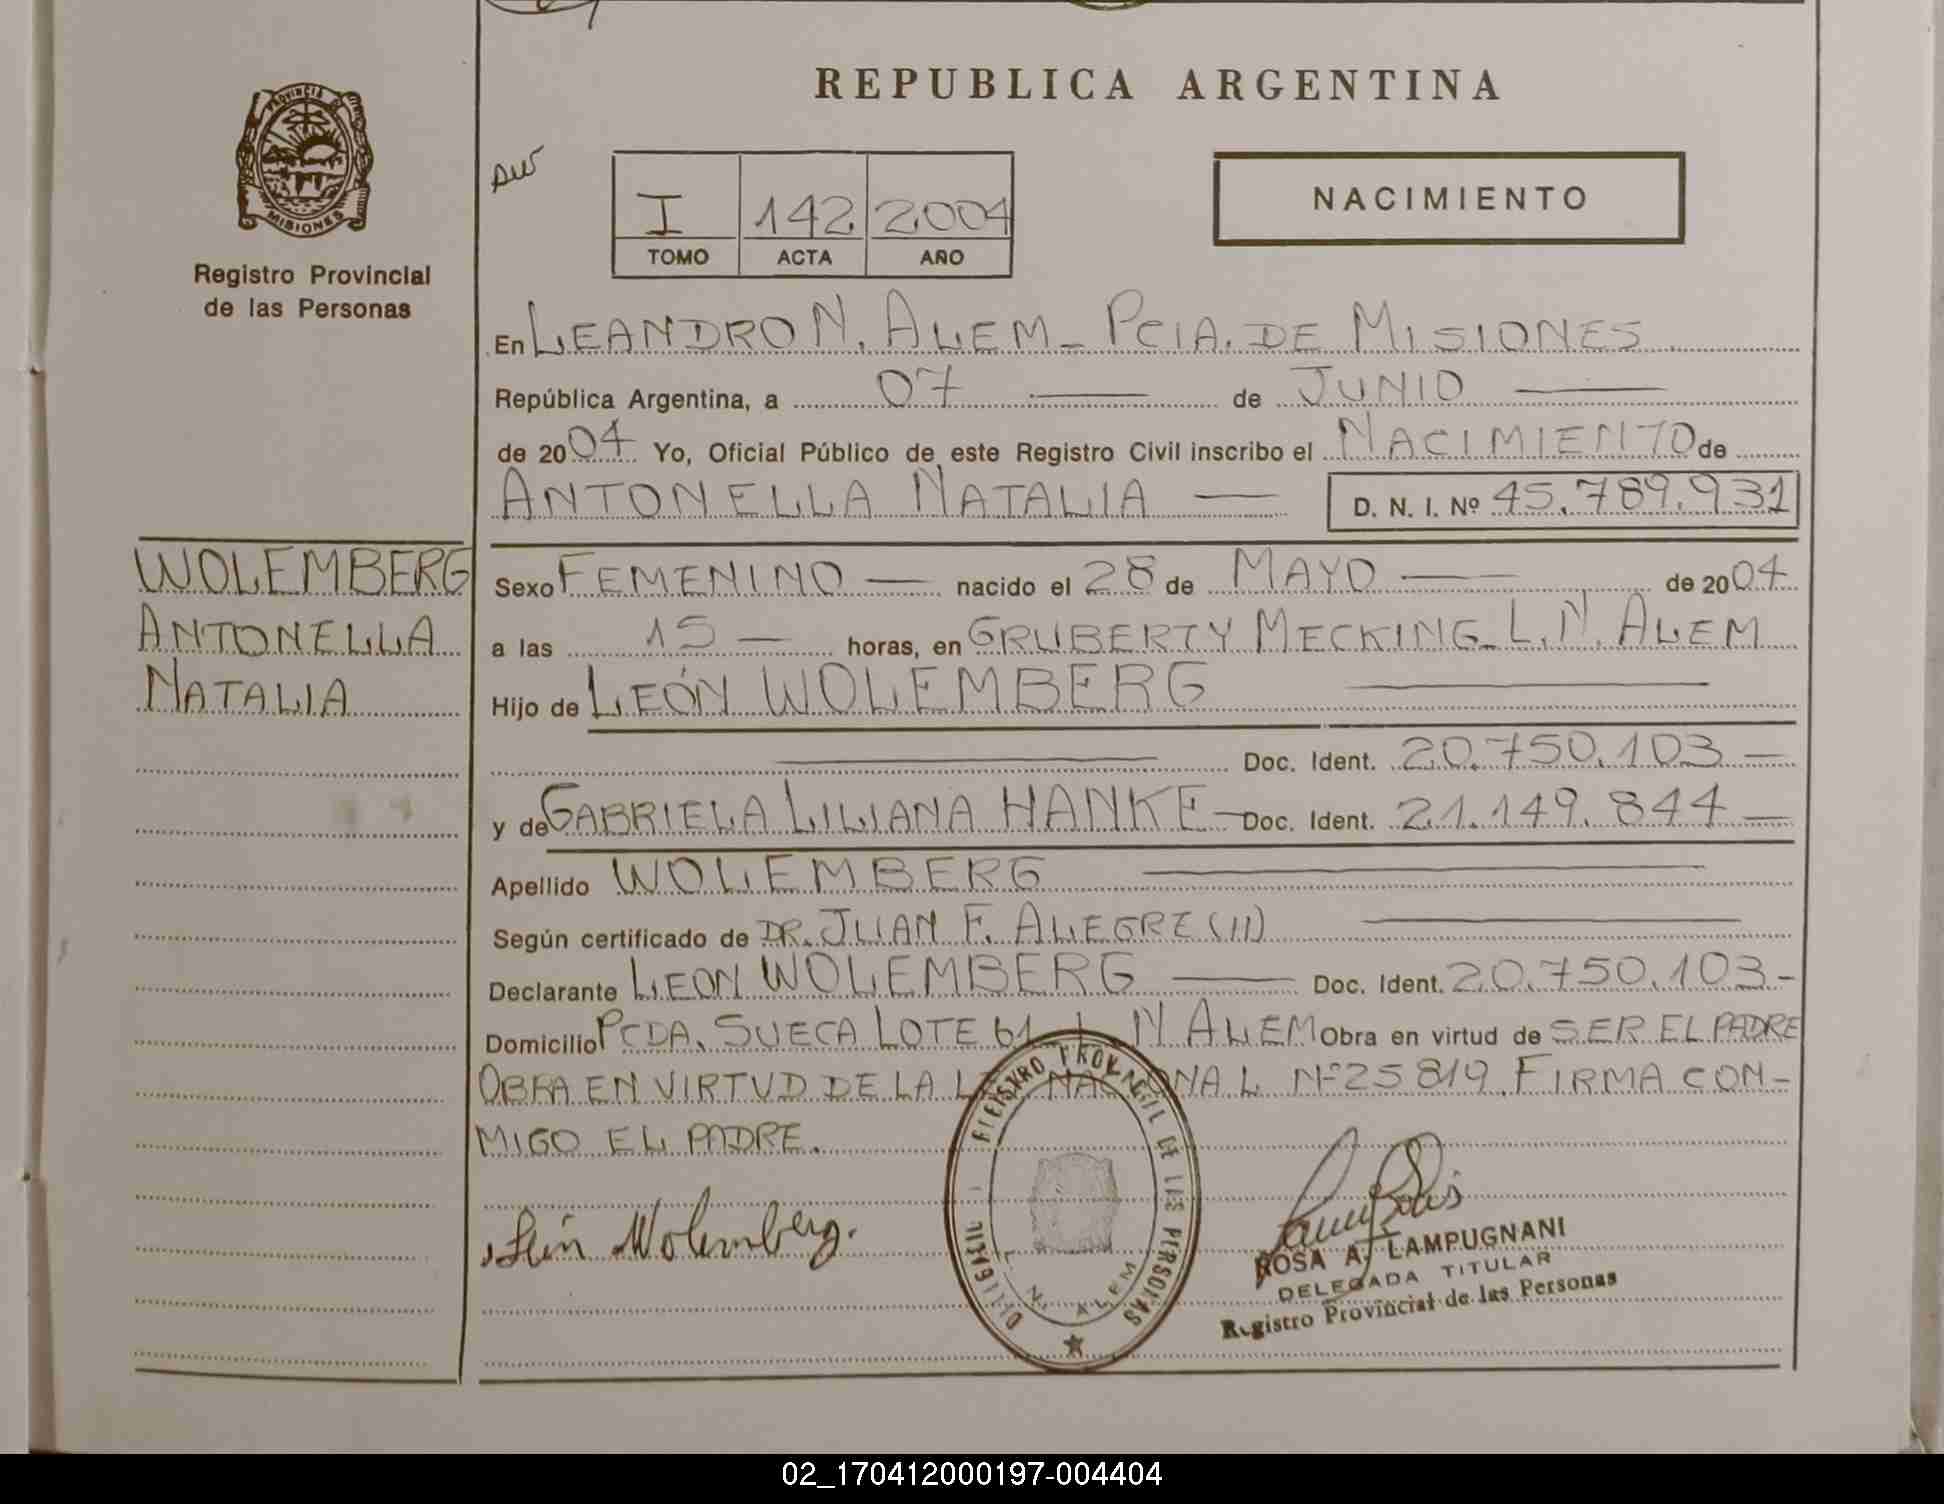 REPUBLICA ARGENTINA
PROVINCIA DE
MISIONES
Registro Provincial
de las Personas
I 142 2004
TOMO ACTA AÑO
NACIMIENTO
En LEANDRO N. ALEM - PCIA. DE MISIONES
República Argentina, a 07 de JUNIO
de 2004 Yo, Oficial Público de este Registro Civil inscribo el NACIMIENTO de
ANTONELLA NATALIA D. N. I. Nº 45.789.931
WOLEMBERG
ANTONELLA
NATALIA
Sexo FEMENINO nacido el 28 de MAYO de 2004
a las 15 horas, en GRUBERT Y MECKING - L. N. ALEM
Hijo de LEÓN WOLEMBERG
Doc. Ident. 20.750.103
y de GABRIELA LILIANA HANKE Doc. Ident. 21.149.844
Apellido WOLEMBERG
Según certificado de DR. JUAN F. ALEGRE (II)
Declarante LEON WOLEMBERG Doc. Ident. 20.750.103
Domicilio PCDA. SUECA LOTE 61 L N ALEM Obra en virtud de SER EL PADRE
OBRA EN VIRTUD DE LA NACIONAL Nº 25819. FIRMA CON-
MIGO EL PADRE.
León Wolemberg.
REGISTRO PROVINCIAL DE LAS PERSONAS
L. N. ALEM
ROSA A. LAMPUGNANI
DELEGADA TITULAR
Registro Provincial de las Personas
02_170412000197-004404